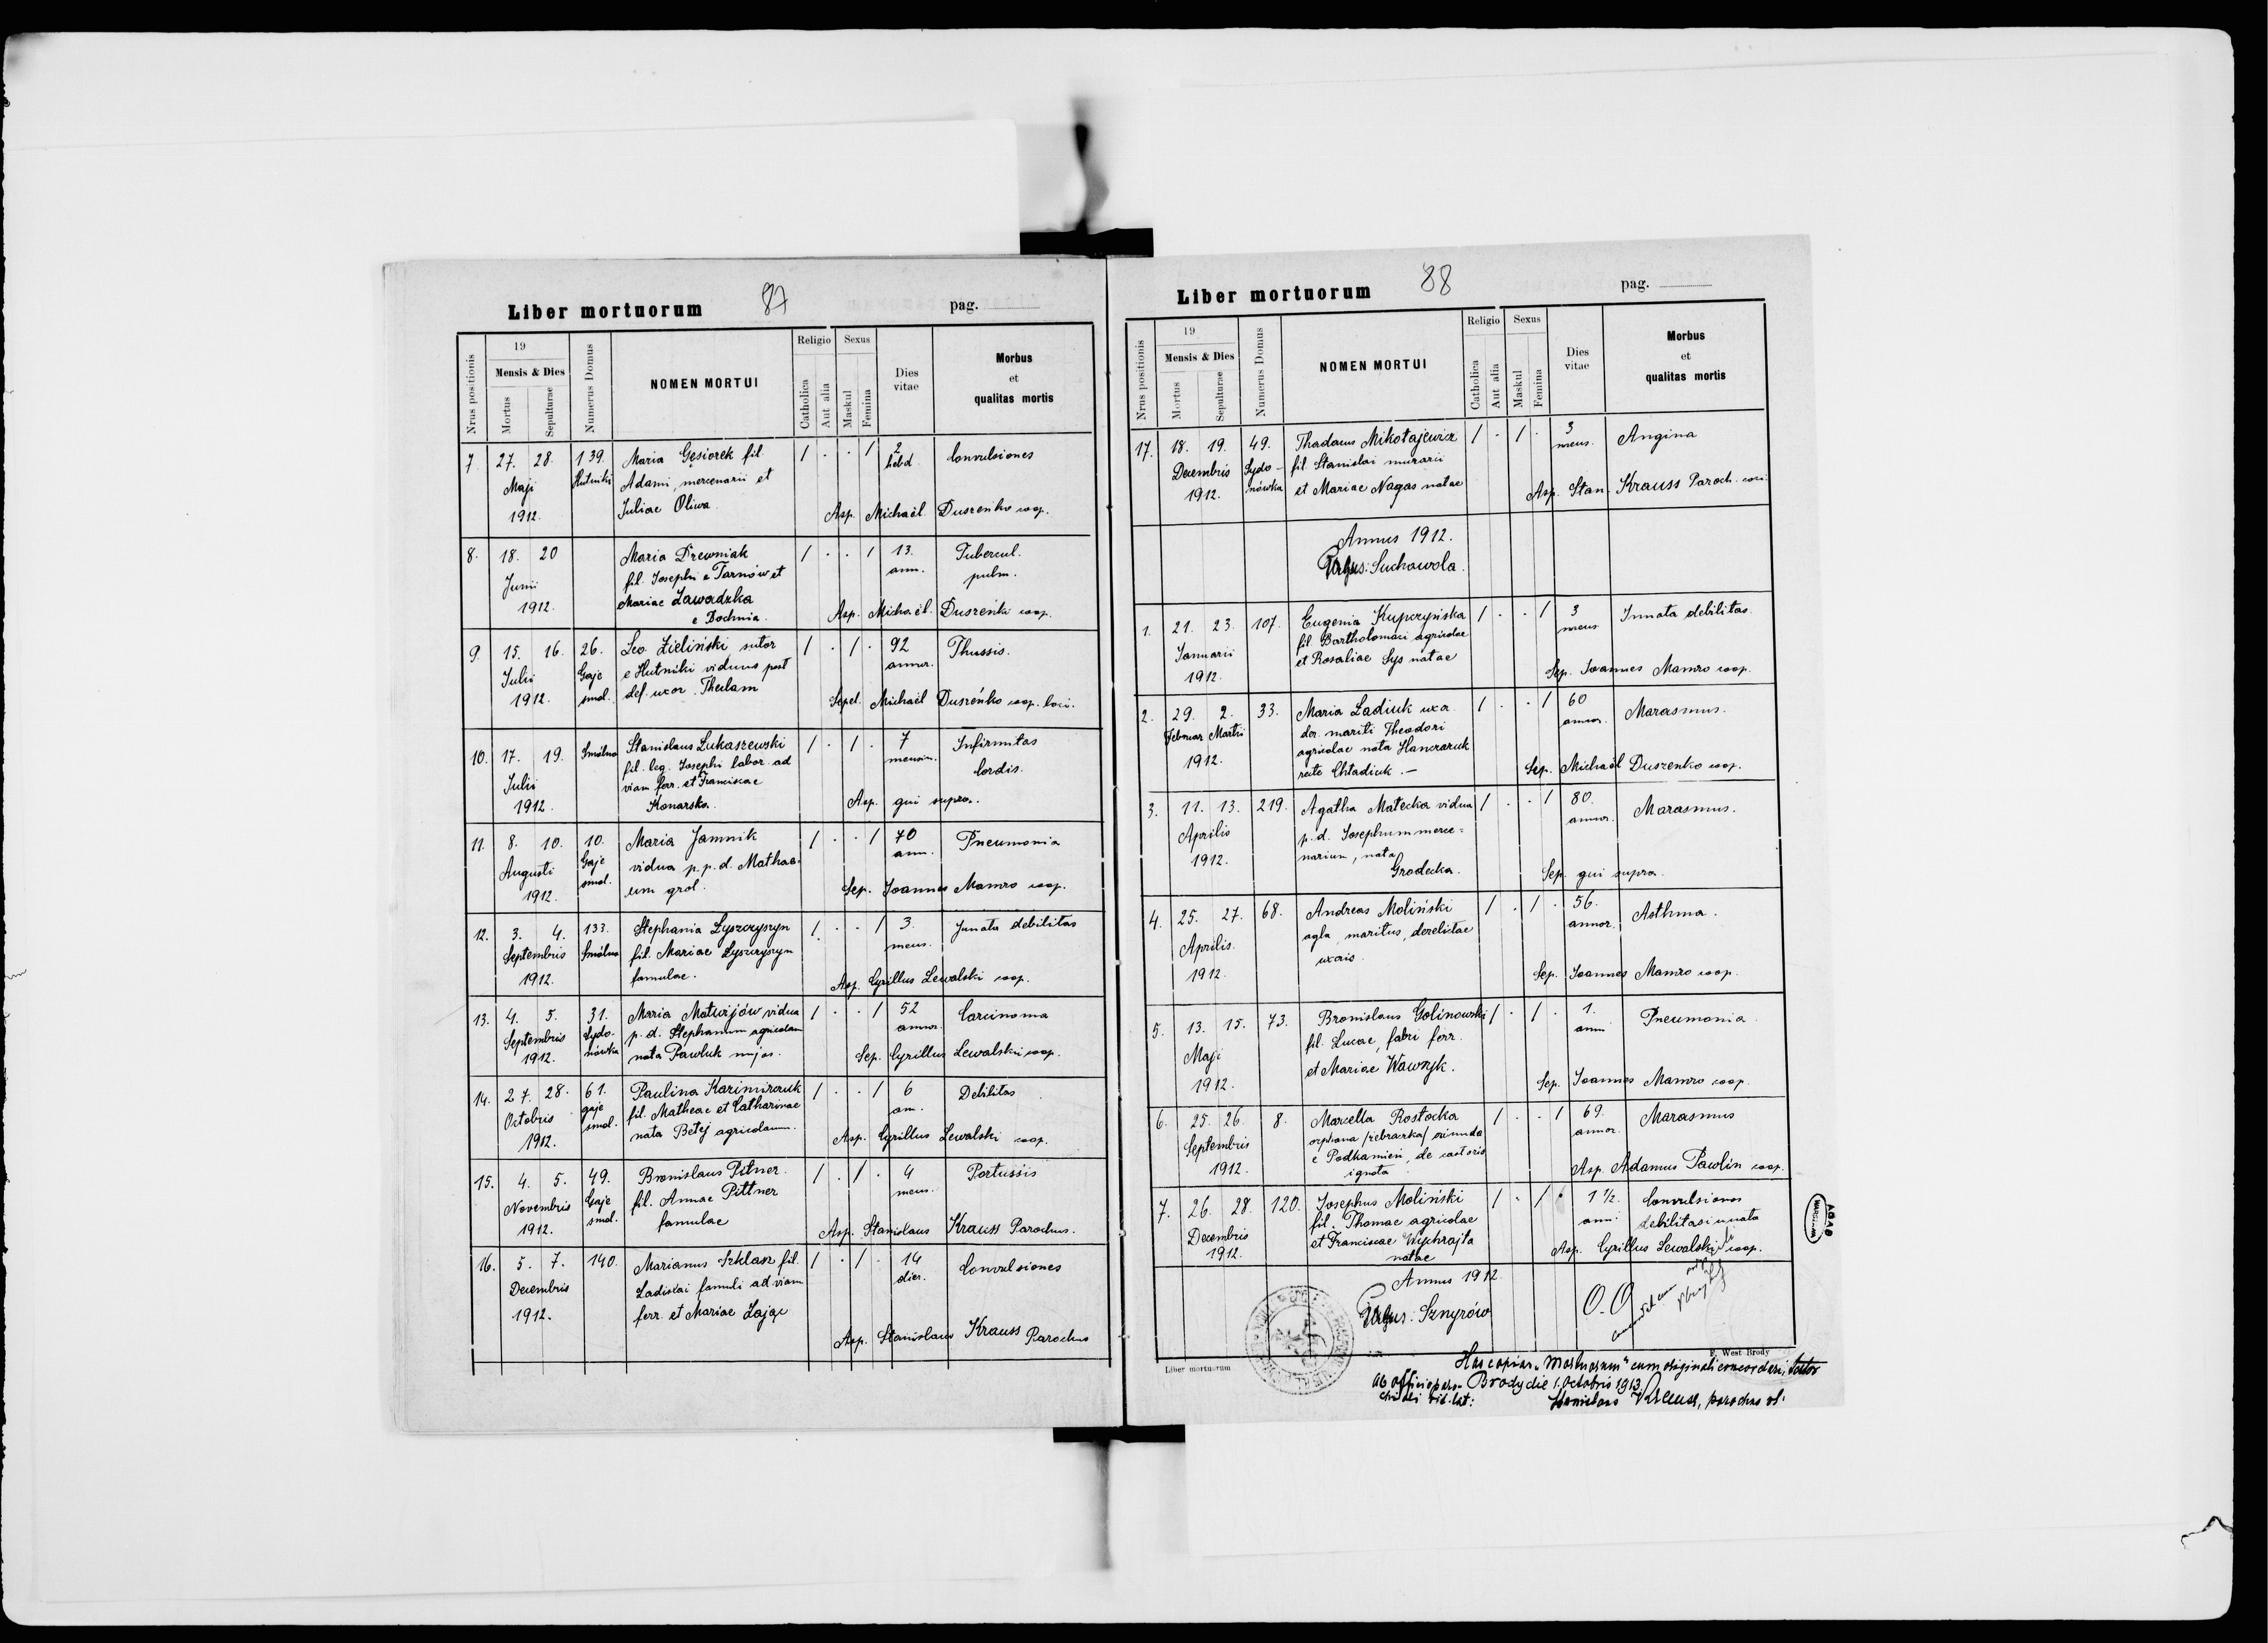 Liber mortuorum 87 pag.
Nrus positionis
19
Mensis & Dies
Mortus
Sepulturae
Numerus Domus
NOMEN MORTUI
Religio
Catholica
Aut alia
Sexus
Maskul
Femina
Dies vitae
Morbus
et
qualitas mortis
7. 27. 28. 139. Maria Gęsiorek fil. 1 . . 1 2 Convulsiones
Maji Hutniki Adami, mercenarii et hebd.
1912. Juliae Oliwa. Asp. Michaël Duszenko coop.
8. 18. 20 Maria Drewniak 1 . . 1 13. Tubercul.
Junii fil. Josephi e Tarnów et ann. pulm.
1912. Mariae Zawadzka Asp. Michaël Duszenko coop.
e Bochnia.
9. 15. 16. 26. Leo Zieliński sutor 1 . 1 . 92 Thussis.
Julii Gaje e Hutniki viduus post annor.
1912. smol. def. uxor. Theclam Sepel. Michaël Duszeńko coop. loci.
10. 17. 19. Smólno Stanislaus Łukaszewski 1 . 1 . 7 Infirmitas
Julii fil. leg. Josephi labor. ad mensium. Cordis.
1912. viam ferr. et Franciscae
Konarska. Asp. qui supra.
11. 8. 10. 10. Maria Jamnik 1 . . 1 70 Pneumonia
Augusti Gaje vidua p.p.d. Mathae- ann.
1912. smol. um agrol. Sep. Joannes Mamro coop.
12. 3. 4. 133. Stephania Łyszczyszyn 1. . . 1 3. Innata debilitas
Septembris Smólno fil. Mariae Łyszczyszyn mens.
1912. famulae. Asp. Cyrillus Lewalski coop.
13. 4. 5. 31. Maria Matwijów vidua 1 . . 1 52 Carcinoma
Septembris Sydo- p. d. Stephanum agricolam annor.
1912. nówka nata Pawluk Sep. Cyrillus Lewalski coop.
14. 27. 28. 61. Paulina Kazimirczuk 1 . . 1 6 Debilitas
Octobris gaje fil. Matheae et Catharinae an.
1912. smol. nata Betej agricolarum. Asp. Cyrillus Lewalski coop.
15. 4. 5. 49. Bronislaus Pitner. 1 . 1 . 4 Pertussis
Novembris Gaje fil. Annae Pittner mens.
1912. smol. famulae Asp. Stanislaus Krauss Parochus.
16. 5. 7. 140. Marianus Szklarz fil. 1 . 1 . 14 Convulsiones
Decembris Ladislai famuli ad viam dier.
1912. ferr. et Mariae Zając
Asp. Stanislaus Krauss Parochus
Liber mortuorum 88 pag.
Nrus positionis
19
Mensis & Dies
Mortus
Sepulturae
Numerus Domus
NOMEN MORTUI
Religio
Catholica
Aut alia
Sexus
Maskul
Femina
Dies vitae
Morbus
et
qualitas mortis
17. 18. 19. 49. Thadaeus Mikołajewicz 1 . 1 . 3 Angina
Decembris Sydo- fil. Stanislai murarii mens.
1912. nówka et Mariae Nagas natae Asp. Stan. Krauss Paroch. loci.
Annus 1912.
Pagus: Suchowola.
1. 21. 23. 107. Eugenia Kupczyńska 1 . . 1 3 Innata debilitas.
Januarii fil. Bartholomaei agricolae mens
1912. et Rosaliae Sys natae Sep. Joannes Mamro coop.
2. 29. 2. 33. Maria Ładiuk uxor 1 . . 1 60 Marasmus.
Februar Martii der. mariti Theodori annor.
1912. agricolae nata Hanczaruk
recte Chładiuk.— Sep. Michaël Duszenko coop.
3. 11. 13. 219. Agatha Małecka vidua 1 . . 1 80. Marasmus.
Aprilis p. d. Josephum merce= annor.
1912. narium, nata
Grodecka. Sep. qui supra.
4. 25. 27. 68. Andreas Moliński 1 . 1 . 56. Asthma.
Aprilis. agla, maritus, derelictae annor.
1912. uxoris. Sep. Joannes Mamro coop.
5. 13. 15. 73. Bronislaus Golinowski 1 . 1 . 1. Pneumonia.
Maji fil. Lucae, fabri ferr. anni
1912. et Mariae Wawryk. Sep. Joannes Mamro coop.
6. 25. 26. 8. Marcella Rostocka 1 . . 1 69. Marasmus
Septembris orphana /żebraczka/ oriunda annor.
1912. e Podkamień, de cast oris
ignota Asp. Adamus Pawlin coop.
7. 26. 28. 120. Josephus Moliński 1 . 1 . 1 1/2. Convulsiones
Decembris fil. Thomae agricolae anni debilitas innata
1912. et Franciscae Wychrajta
natae Asp. Cyrillus Lewalski coop.
Annus 1912
Pagus: Sznyrów O. O
Liber mortuorum
F. West Brody
Has copias „Mortuorum" cum originali concordari,
Ab officio paro- Brody die 1. Octobris 1913
Stanislaus Krauss, parochus
AGAD
WARSZAWA